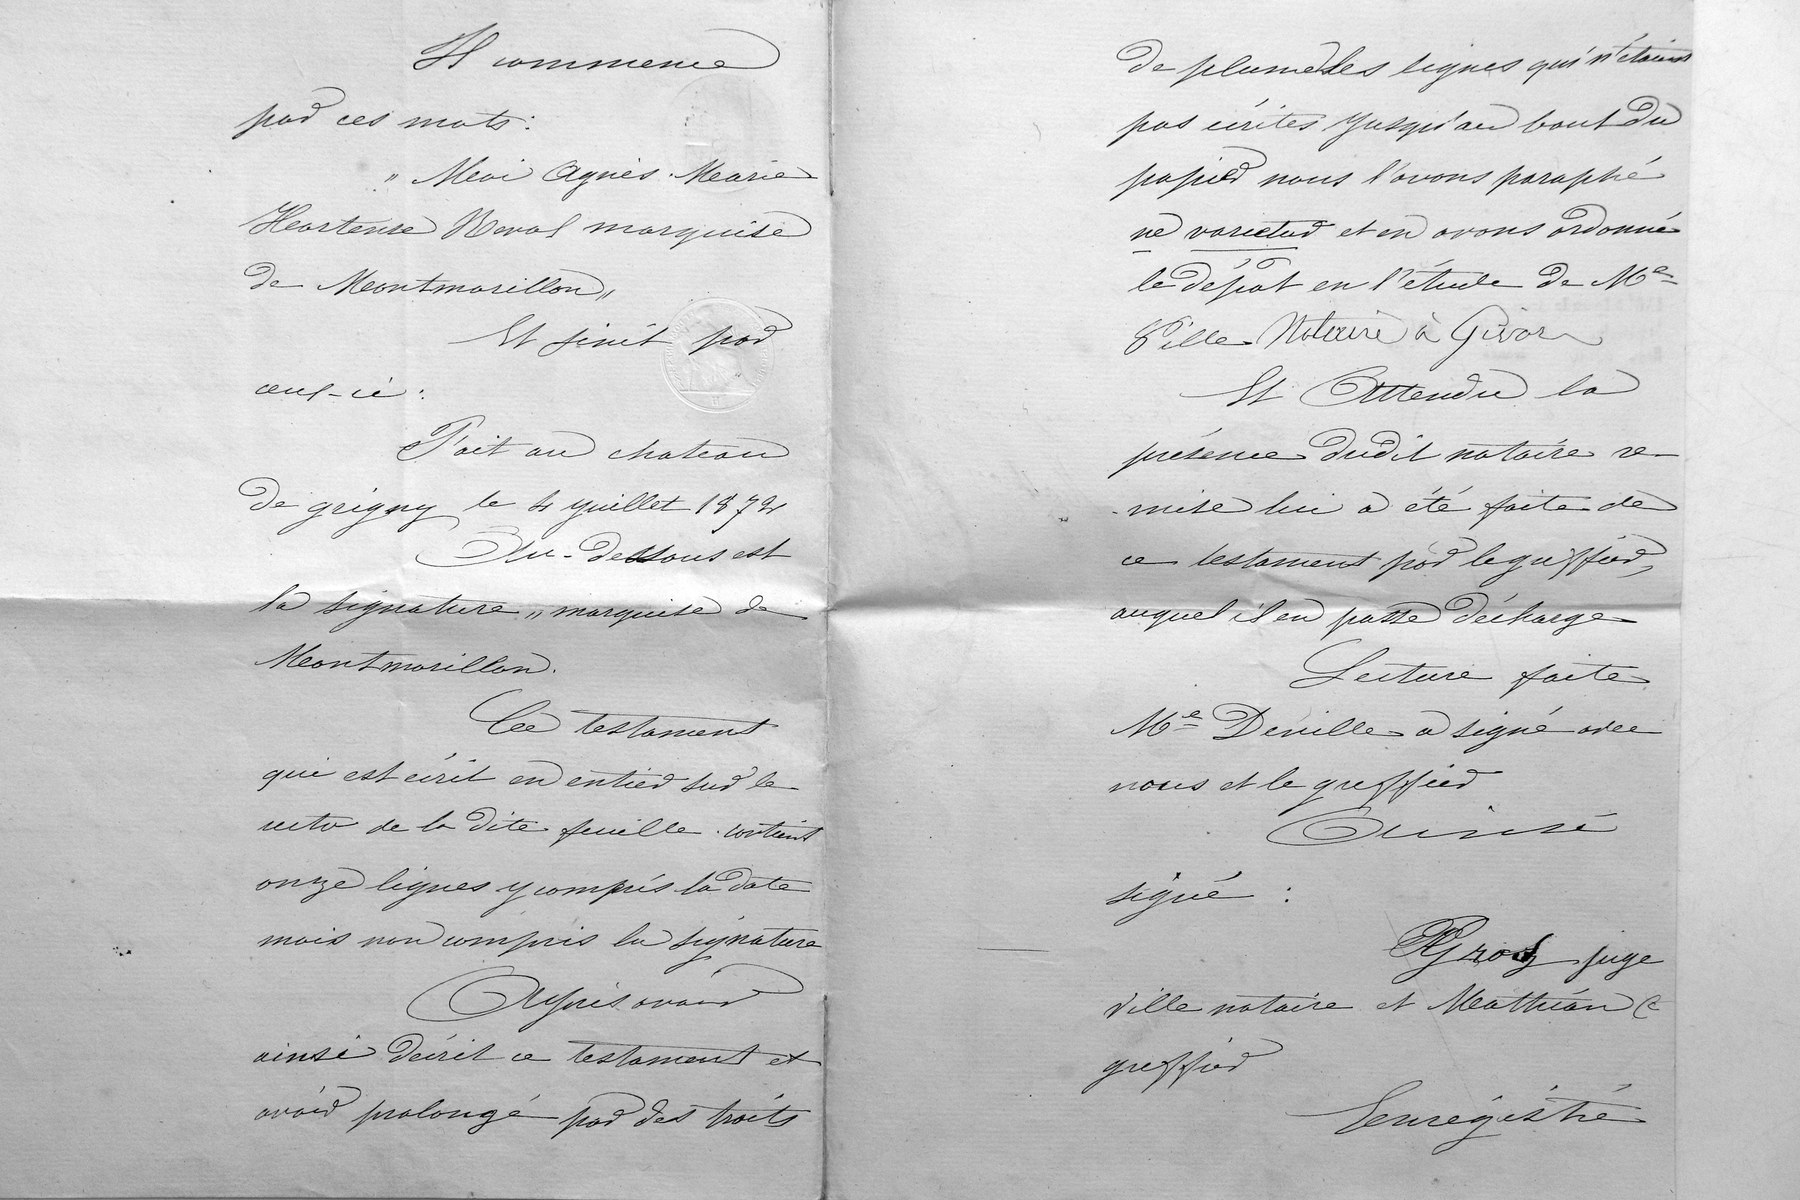 Il commence
par ces mots:
„ Moi Agnès Marie
Hortense Reval marquise
de Montmorillon „
Et finit par
ceux-ci:
Fait au chateau
de grigny le 4 Juillet 1874
Au-dessous est
la signature „ marquise de
Montmorillon.
Ce testament
qui est écrit en entier sur le
recto de la dite feuille contient
onze lignes y compris la date
mais non compris la signature
Après avoir
ainsi décrit ce testament et
avoir prolongé par des traits
de plume les lignes qui n'étaient
pas écrites jusqu'au bout du
papier nous l'avons paraphé
ne varietur et en avons ordonné
le dépot en l'étude de Me
Ville Notaire à Givors
Et Attendu la
présence dudit notaire re-
mise lui a été faite de
ce testament par le greffier,
auquel il en passe décharge
Lecture faite
Me Deville a signé avec
nous et le greffier
Ainsi
signé :
juge
Ville notaire et Mathian
greffier
Enregistré